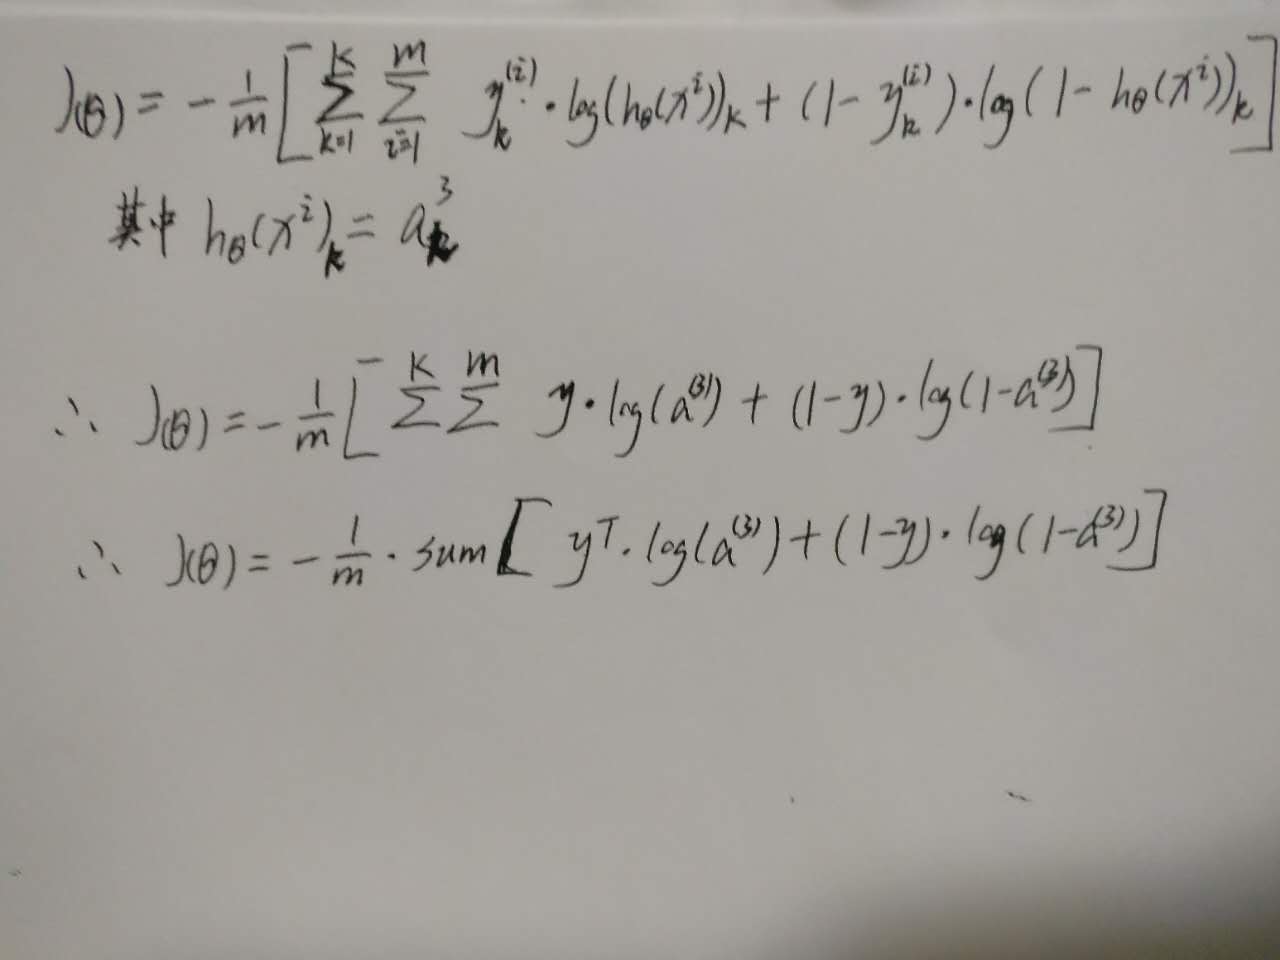 J(θ) = - 1/m [ ∑_{k=1}^{K} ∑_{i=1}^{m} y_k^{(i)} · log(h_θ(x^i))_k + (1 - y_k^{(i)}) · log(1 - h_θ(x^i))_k ]
其中 h_θ(x^i)_k = a_k^3
∴ J(θ) = - 1/m [ ∑^K ∑^m y · log(a^{(3)}) + (1-y) · log(1-a^{(3)}) ]
∴ J(θ) = - 1/m · sum [ y^T · log(a^{(3)}) + (1-y) · log(1-a^{(3)}) ]